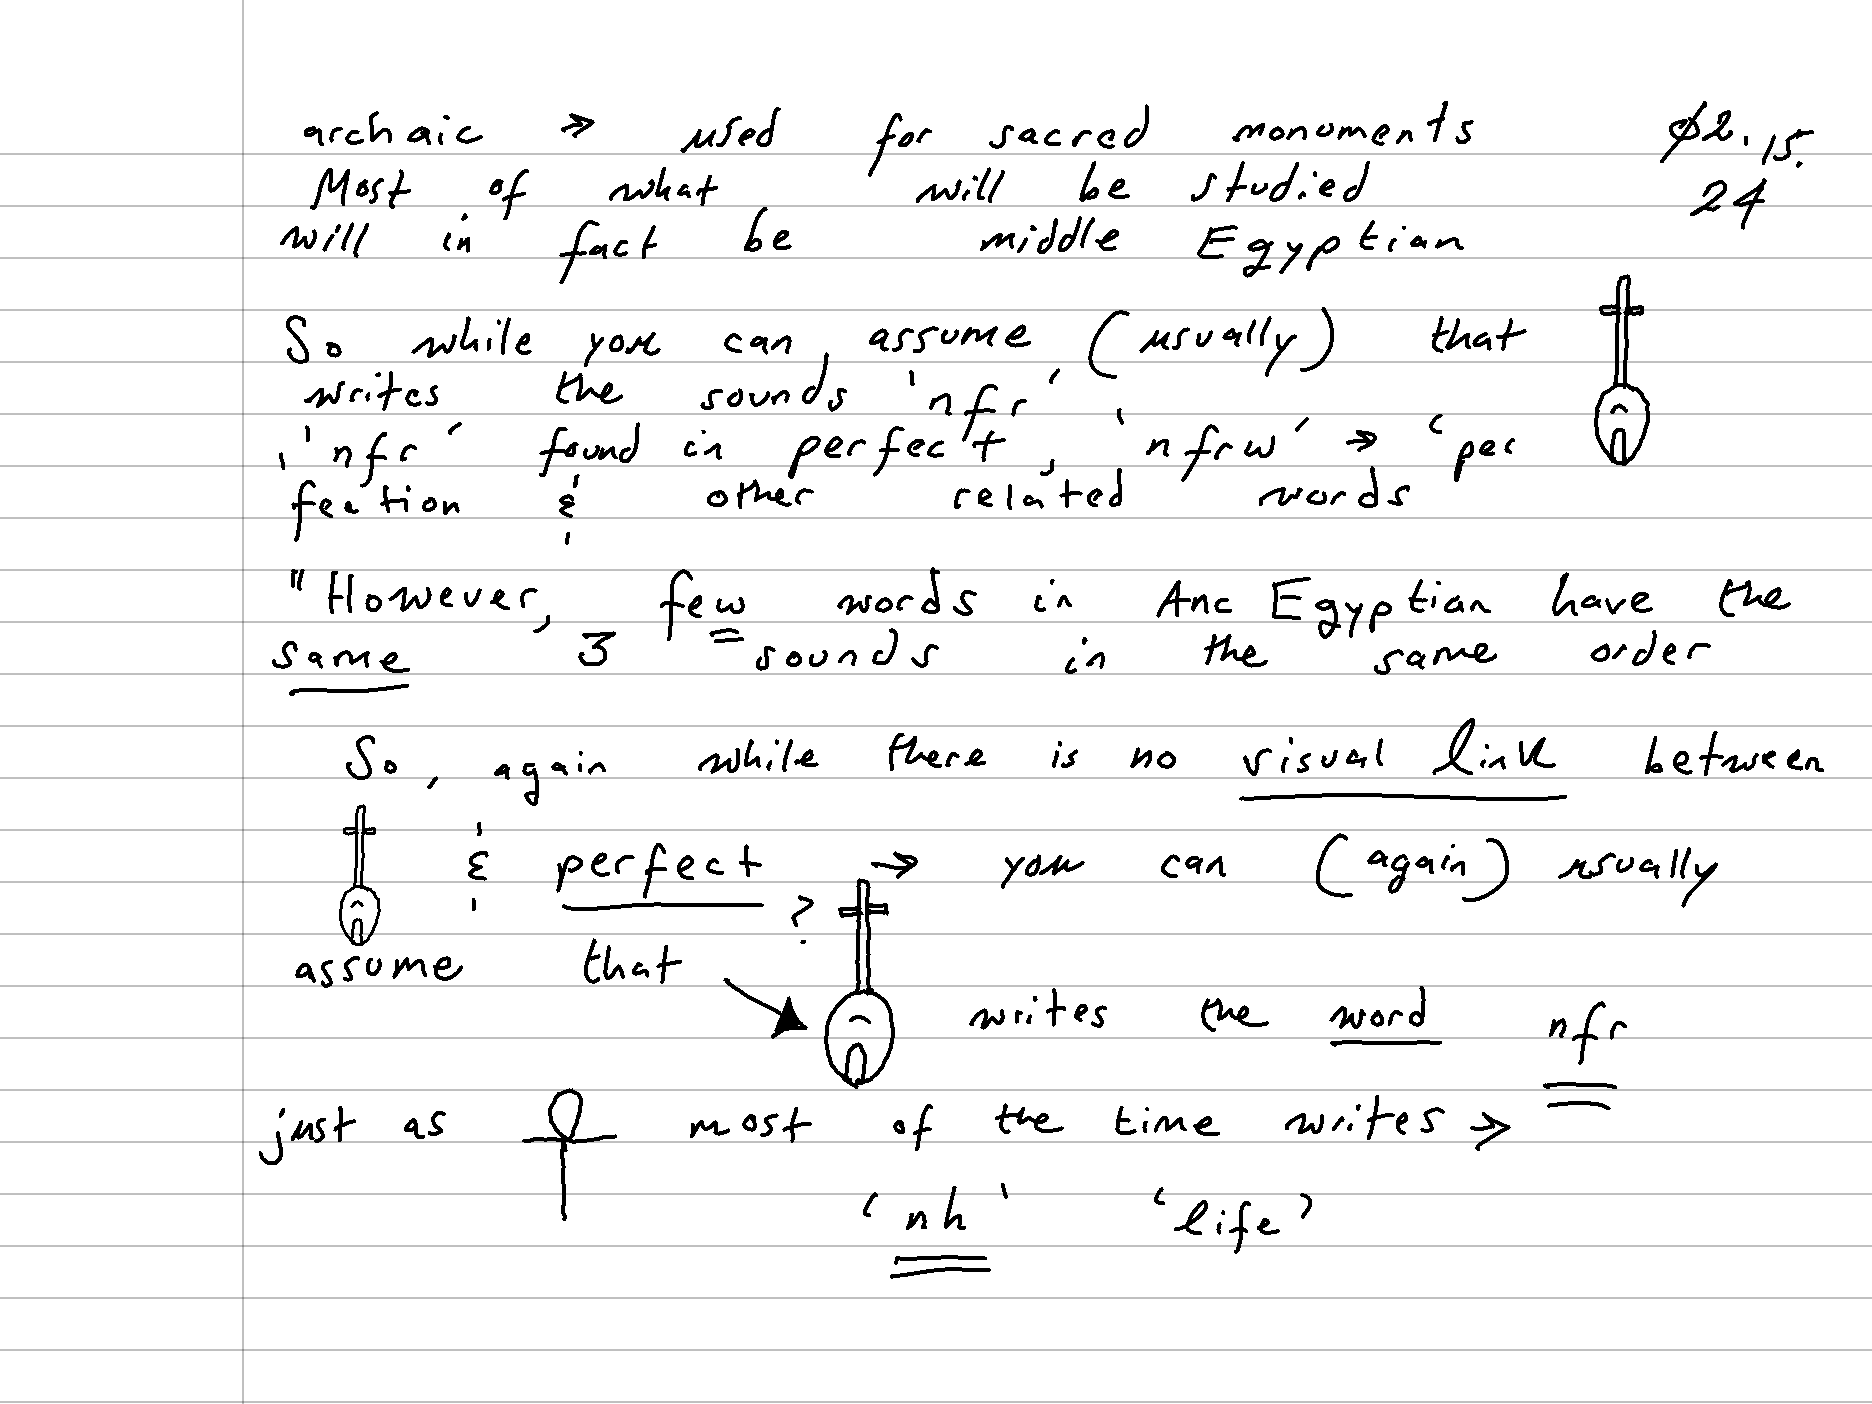 archaic → used for sacred monuments ø2.15.
Most of what will be studied 24
will in fact be middle Egyptian
So while you can assume (usually) that
writes the sounds 'nfr'
'nfr' found in perfect, 'nfrw' → 'per
fection & other related words
"However, few words in Anc Egyptian have the
same 3 sounds in the same order
So, again while there is no visual link between
& perfect → you can (again) usually
?
assume that
writes the word nfr
just as most of the time writes →
'nh' 'life'